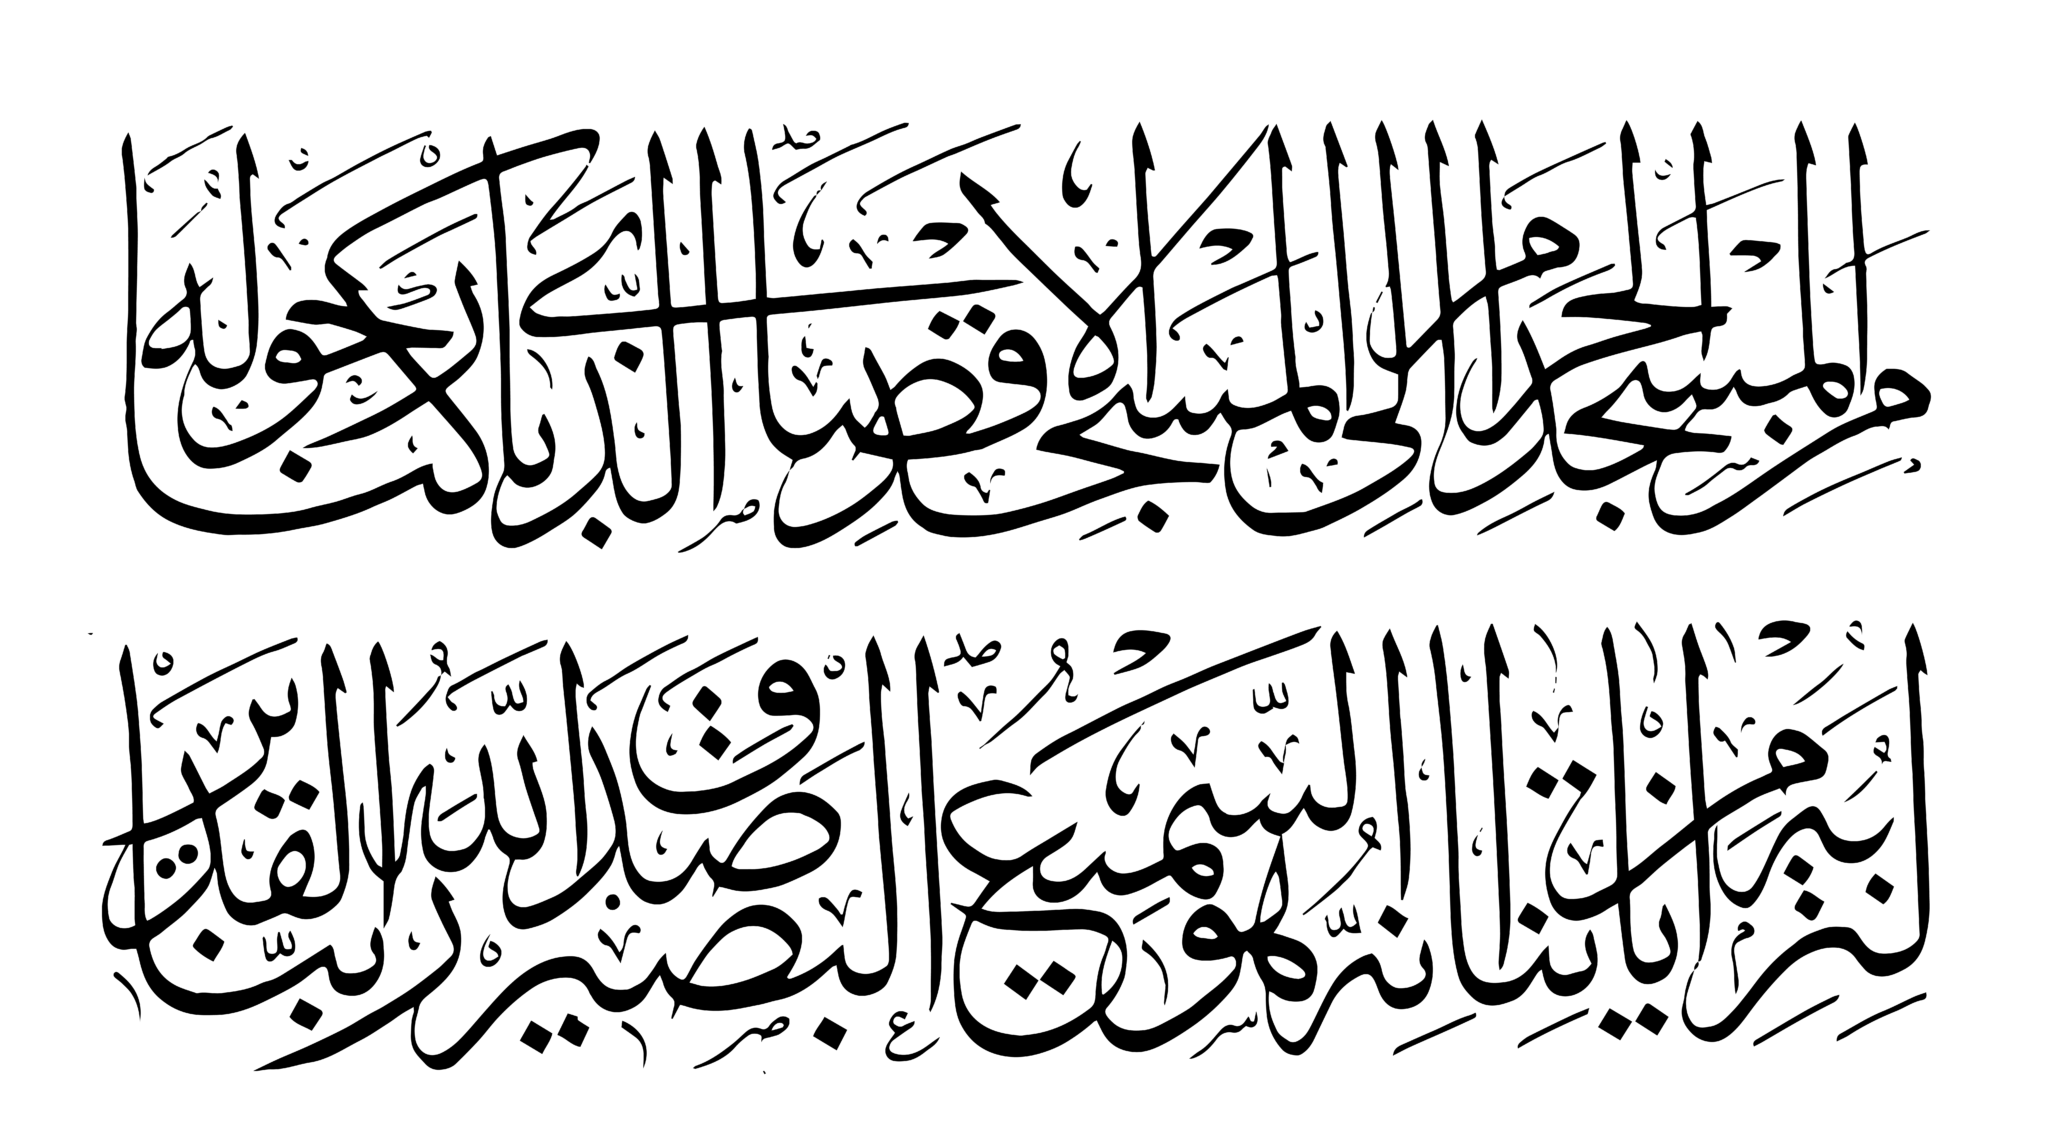 من المسجد الحرام الى المسجد الاقصا الذي باركنا حوله
لنريه من اياتنا انه هو السميع البصير صدق الله رب القدير